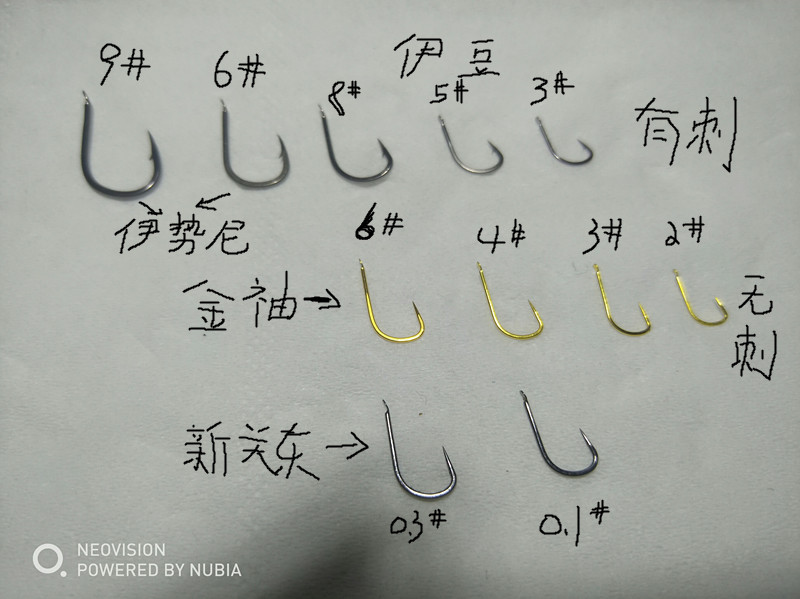 伊豆
9# 6# 8# 5# 3#
有刺
伊势尼
6# 4# 3# 2#
金袖→
无刺
新关东→
0.3# 0.1#
NEOVISION
POWERED BY NUBIA